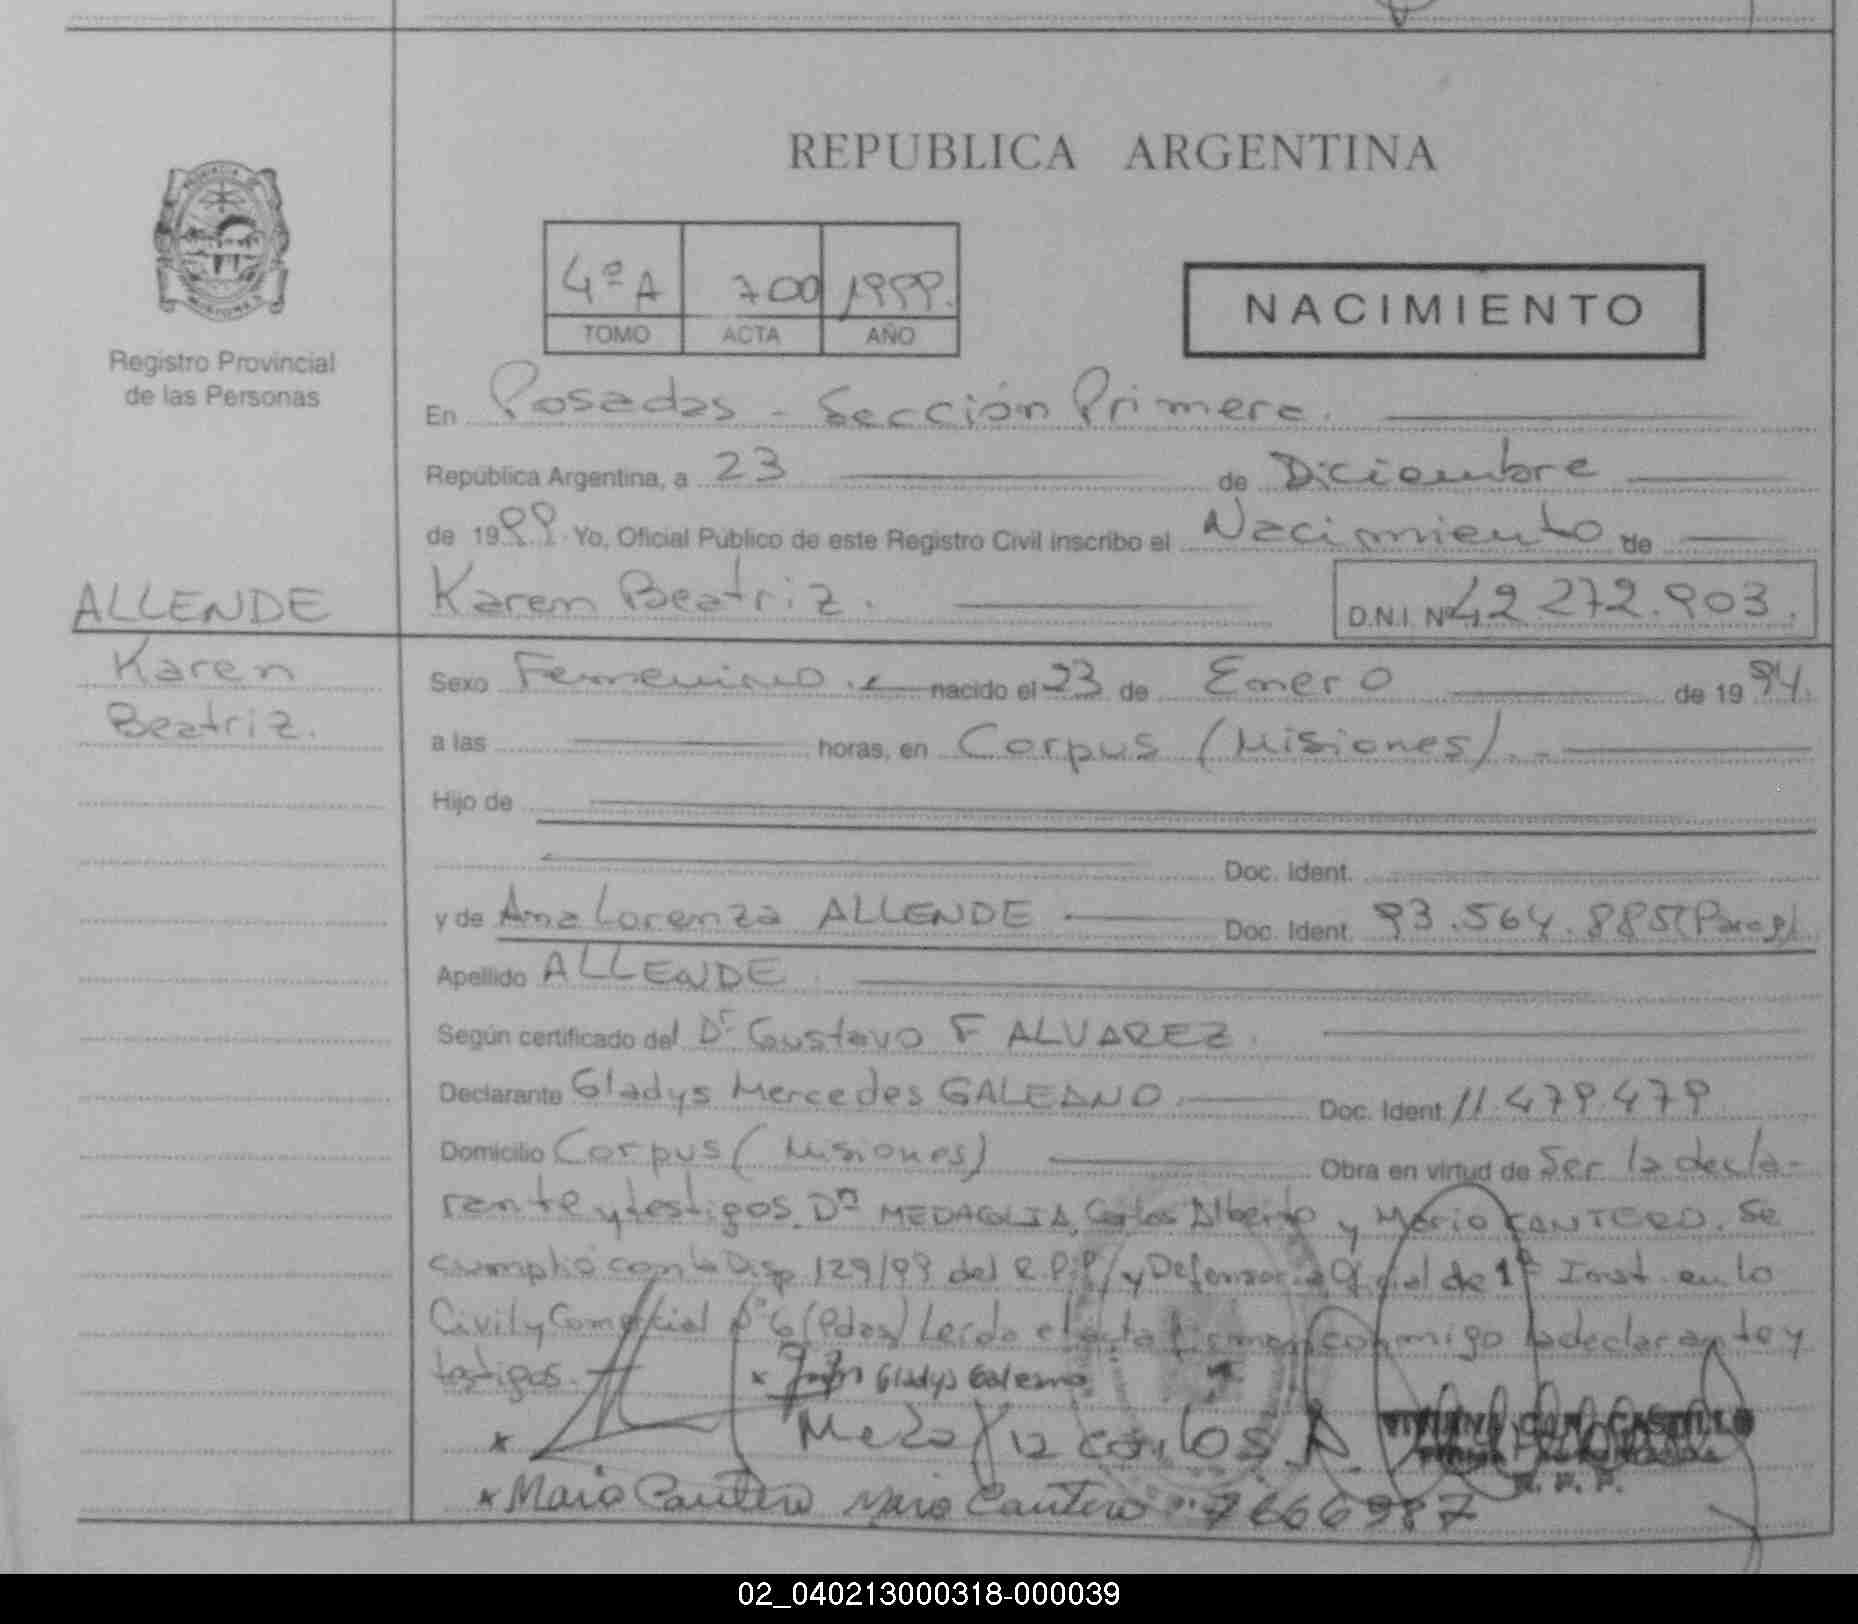 REPUBLICA ARGENTINA
4º A 700 1999.
TOMO ACTA AÑO
NACIMIENTO
Registro Provincial
de las Personas
En Posadas - Sección Primera.
República Argentina, a 23 de Diciembre
de 1999 Yo, Oficial Público de este Registro Civil inscribo el Nacimiento de
ALLENDE
Karen Beatriz. D.N.I. Nº 42.272.903.
Karen
Beatriz.
Sexo Femenino.- nacido el 23 de Enero de 1994.
a las horas, en Corpus (Misiones).-
Hijo de
Doc. Ident.
y de Ana Lorenza ALLENDE Doc. Ident. 93.564.885 (Parag)
Apellido ALLENDE
Según certificado del Dr Gustavo F ALVAREZ.
Declarante Gladys Mercedes GALEANO Doc. Ident. 11.479.479
Domicilio Corpus (Misiones) Obra en virtud de Ser la decla-
rante y testigos. Dn MEDAGLIA, Carlos Alberto y Mario CANTERO. Se
cumplió con la Disp 129/99 del R.P.P. y Defensoria Oficial de 1ª Inst. en lo
Civil y Comercial Nº 6 (Pdas) Leída el acta firman conmigo la declarante y
testigos.
x Gladys Galeano
x Medaglia Carlos A.
CASTILLO
R. P. P.
x Mario Cantero Mario Cantero 7666987
02_040213000318-000039